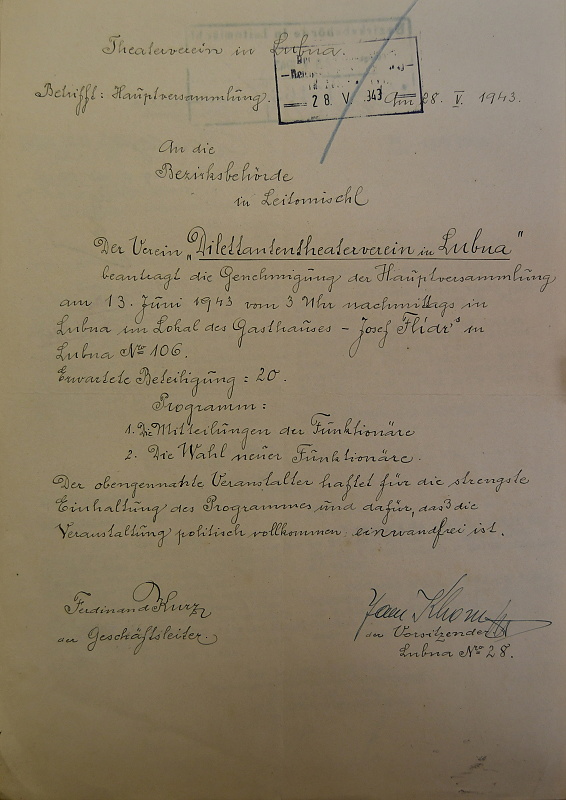 Theaterverein in Lubna.
Betrifft: Hauptversammlung.
28. V. 943
Am 28. V. 1943.
An die
Bezirksbehörde
in Leitomischl
Der Verein „Dilettantentheaterverein in Lubna"
beantragt die Genehmigung der Hauptversammlung
am 13. Juni 1943 vom 3 Uhr nachmittags in
Lubna im Lokal des Gasthauses – Josef Flídr's in
Lubna No 106.
Erwartete Beteiligung : 20.
Programm :
1. Die Mitteilungen der Funktionäre
2. Die Wahl neuer Funktionäre.
Der obengenannte Veranstalter haftet für die strengste
Einhaltung des Programmes und dafür, dass die
Veranstaltung politisch vollkommen einwandfrei ist.
Ferdinand Kurz
der Geschäftsleiter.
Jan
der Vorsitzender
Lubna No 28.